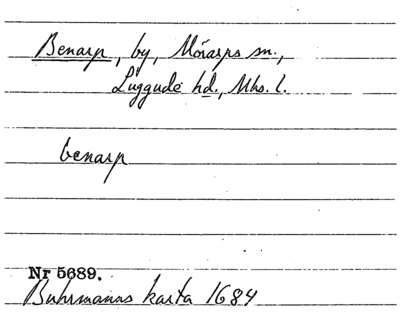 Benarp, by, Mörarps sn.,
Luggude hd., Mhs. l.
benarp
Nr 5689.
Buhrmanns karta 1684